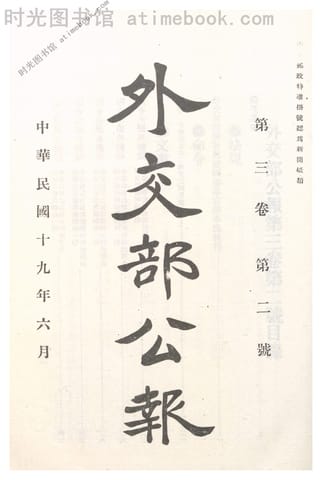 时光图书馆 atimebook.com
时光图书馆 atimebook.com
郵政特准掛號認爲新聞紙類
第三卷第二號
外交部公報
中華民國十九年六月